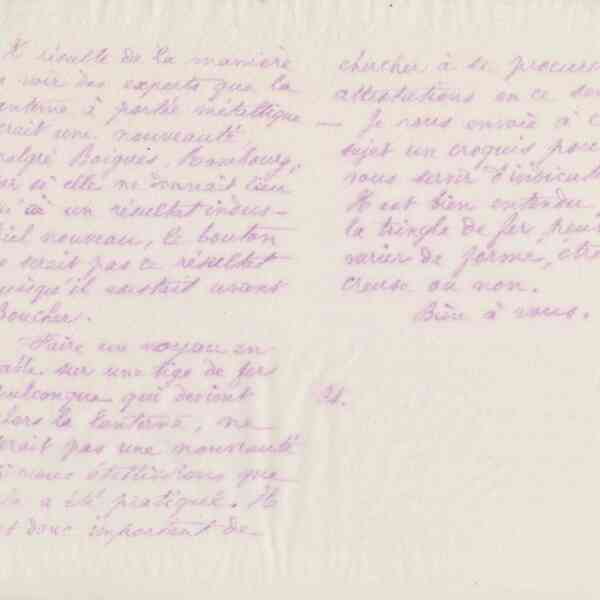 Il résulte de la manière
de voir des experts que la
lanterne à portée métallique
serait une nouveauté
malgré Boigues, Hambourg,
car si elle ne donnait lieu
qu'à un résultat indus-
triel nouveau, le bouton
ne serait pas ce résultat
puisqu'il existait avant
Boucher.
Faire un noyau en
sable sur une tige de fer
quelconque qui devient
alors la lanterne, ne
serait pas une nouveauté
si nous établissions que
cela a été pratiqué. Il
est donc important de
chercher à se procurer
attestations en ce sens
— Je vous envoie à ce
sujet un croquis pour
vous servir d'indicat
Il est bien entendu
la tringle de fer peut
varier de forme, être
creuse ou non.
Bien à vous.